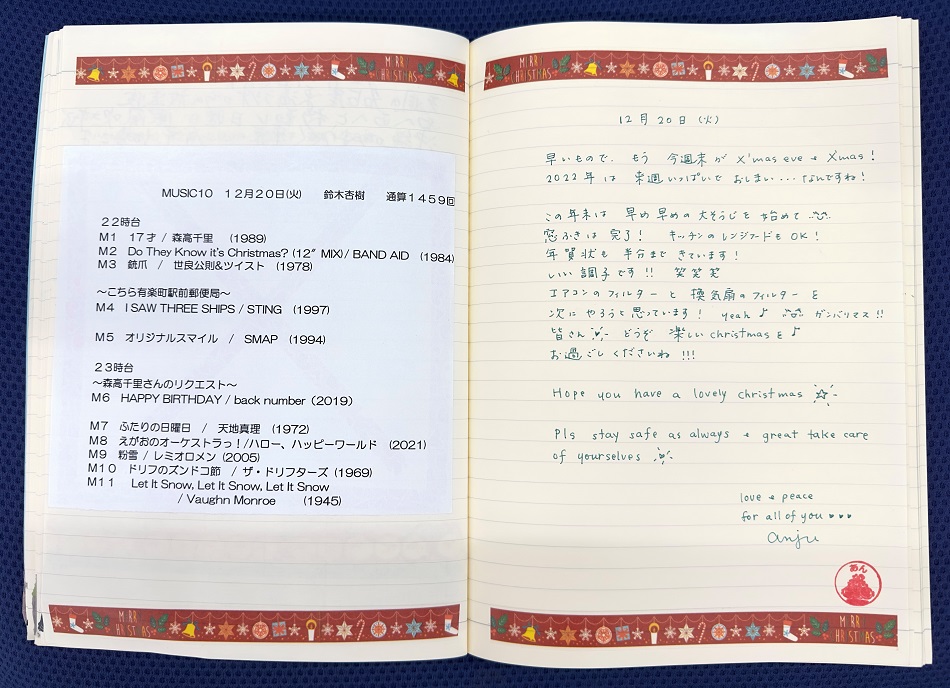 MERRY CHRISTMAS
MUSIC10 12月20日(火) 鈴木杏樹 通算1459回
22時台
M1 17才 / 森高千里 (1989)
M2 Do They Know it's Christmas? (12" MIX)/ BAND AID (1984)
M3 銃爪 / 世良公則&ツイスト (1978)
～こちら有楽町駅前郵便局～
M4 I SAW THREE SHIPS / STING (1997)
M5 オリジナルスマイル / SMAP (1994)
23時台
～森高千里さんのリクエスト～
M6 HAPPY BIRTHDAY / back number (2019)
M7 ふたりの日曜日 / 天地真理 (1972)
M8 えがおのオーケストラっ！/ハロー、ハッピーワールド (2021)
M9 粉雪 / レミオロメン (2005)
M10 ドリフのズンドコ節 / ザ・ドリフターズ (1969)
M11 Let It Snow, Let It Snow, Let It Snow
/ Vaughn Monroe (1945)
MERRY CHRISTMAS
MERRY CHRISTMAS
12月20日(火)
早いもので、もう 今週末が X'mas eve & Xmas!
2022年は 来週いっぱいで おしまい...なんですね!
この年末は 早め早めの大そうじを始めて
窓ふきは完了! キッチンのレンジフードもOK!
年賀状も 半分まで きています!
いい調子です!! 笑笑笑
エアコンのフィルターと 換気扇のフィルターを
次に やろうと思っています! Yeah♪ ガンバリマス!!
皆さん どうぞ 楽しい christmas を♪
お過ごしくださいね!!!
Hope you have a lovely christmas
Pls stay safe as always & great take care
of yourselves
love & peace
for all of you
anju
あん
MERRY CHRISTMAS